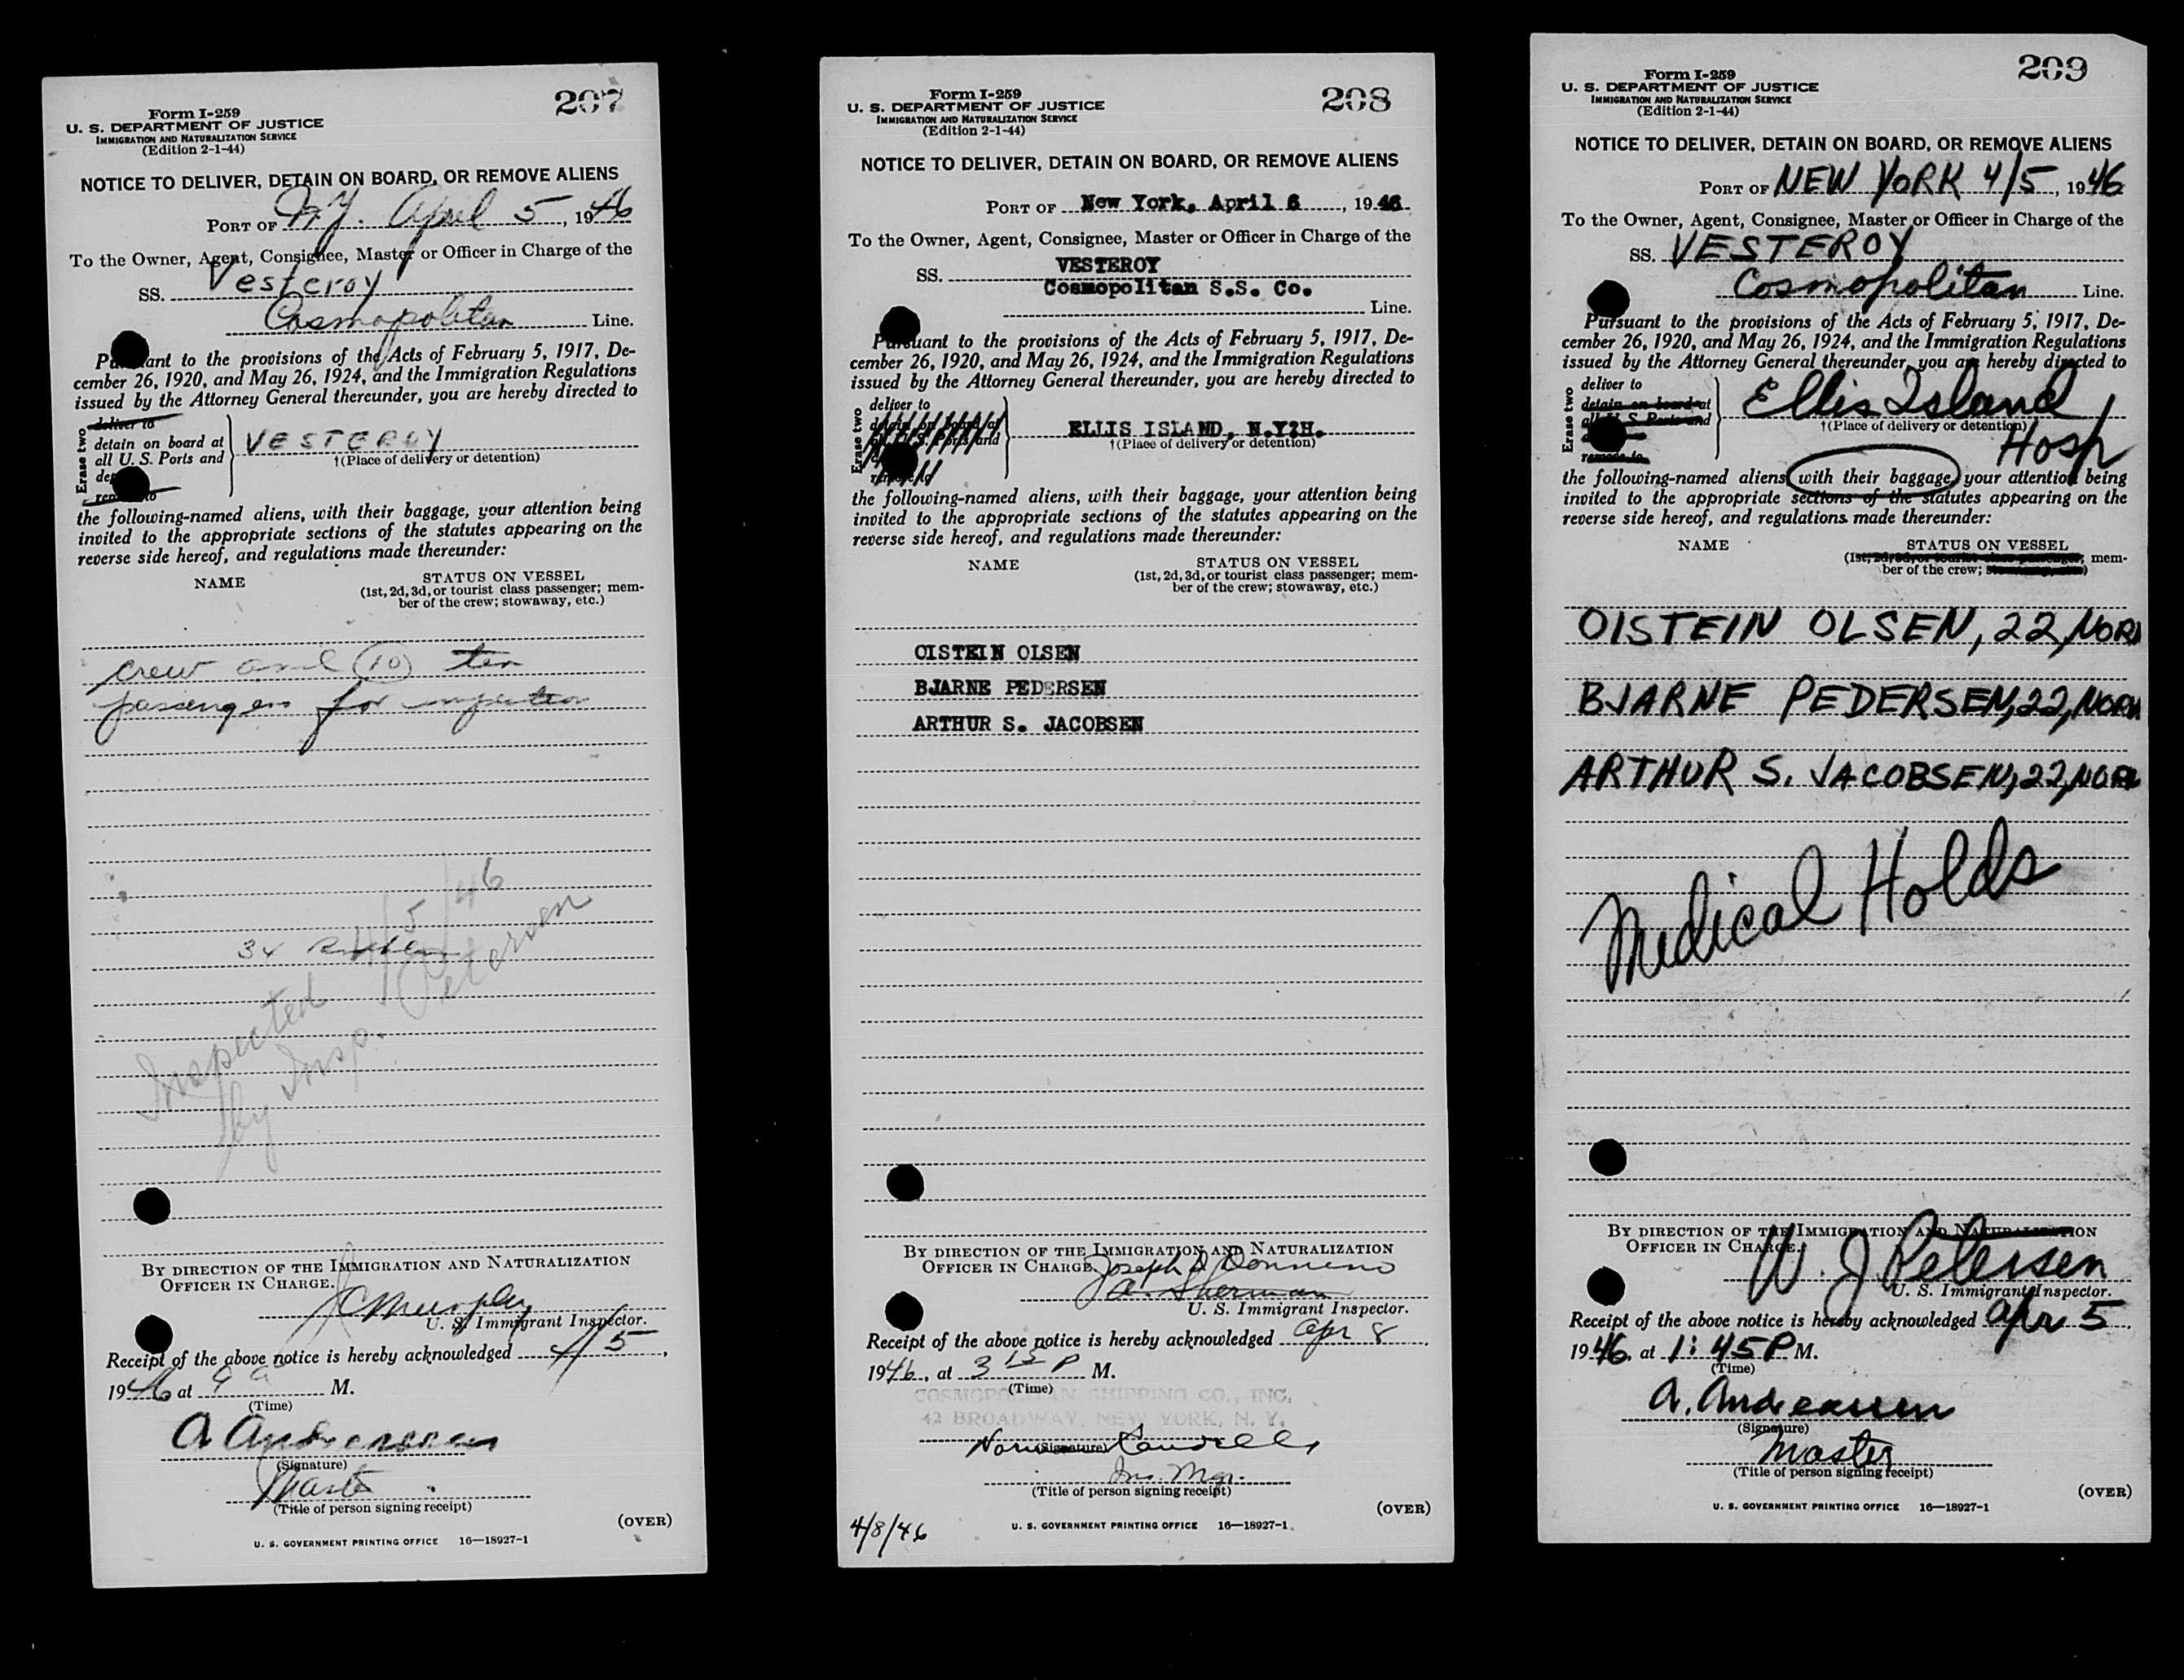 207
Form I-259
U. S. DEPARTMENT OF JUSTICE
IMMIGRATION AND NATURALIZATION SERVICE
(Edition 2-1-44)
NOTICE TO DELIVER, DETAIN ON BOARD, OR REMOVE ALIENS
PORT OF N.Y. April 5, 1946
To the Owner, Agent, Consignee, Master or Officer in Charge of the
SS. Vesteroy
Cosmopolitan Line.
Pursuant to the provisions of the Acts of February 5, 1917, De-
cember 26, 1920, and May 26, 1924, and the Immigration Regulations
issued by the Attorney General thereunder, you are hereby directed to
Erase two
deliver to
detain on board at
all U. S. Ports and
remove to
VESTEROY
†(Place of delivery or detention)
the following-named aliens, with their baggage, your attention being
invited to the appropriate sections of the statutes appearing on the
reverse side hereof, and regulations made thereunder:
NAME
STATUS ON VESSEL
(1st, 2d, 3d, or tourist class passenger; mem-
ber of the crew; stowaway, etc.)
crew and (10) ten
passengers for inspection
34
Inspected 4/5/46
by Insp. Petersen
BY DIRECTION OF THE IMMIGRATION AND NATURALIZATION
OFFICER IN CHARGE.
J C Murphy
U. S. Immigrant Inspector.
Receipt of the above notice is hereby acknowledged 4/5,
1946 at 9 a M.
(Time)
A Andreassen
(Signature)
Master
(Title of person signing receipt)
(OVER)
U. S. GOVERNMENT PRINTING OFFICE 16—18927-1
208
Form I-259
U. S. DEPARTMENT OF JUSTICE
IMMIGRATION AND NATURALIZATION SERVICE
(Edition 2-1-44)
NOTICE TO DELIVER, DETAIN ON BOARD, OR REMOVE ALIENS
PORT OF New York, April 6, 1946
To the Owner, Agent, Consignee, Master or Officer in Charge of the
SS. VESTEROY
Cosmopolitan S.S. Co.
Line.
Pursuant to the provisions of the Acts of February 5, 1917, De-
cember 26, 1920, and May 26, 1924, and the Immigration Regulations
issued by the Attorney General thereunder, you are hereby directed to
Erase two
deliver to
detain on board at
all U. S. Ports and
remove to
ELLIS ISLAND, N.Y?H.
†(Place of delivery or detention)
the following-named aliens, with their baggage, your attention being
invited to the appropriate sections of the statutes appearing on the
reverse side hereof, and regulations made thereunder:
NAME
STATUS ON VESSEL
(1st, 2d, 3d, or tourist class passenger; mem-
ber of the crew; stowaway, etc.)
OISTEIN OLSEN
BJARNE PEDERSEN
ARTHUR S. JACOBSEN
BY DIRECTION OF THE IMMIGRATION AND NATURALIZATION
OFFICER IN CHARGE.
Joseph
A. Sherman
U. S. Immigrant Inspector.
Receipt of the above notice is hereby acknowledged Apr 8,
1946, at 3 15 P M.
(Time)
COSMOPOLITAN SHIPPING CO., INC.
42 BROADWAY, NEW YORK, N. Y.
(Signature)
Ins. Mgr.
(Title of person signing receipt)
(OVER)
4/8/46
U. S. GOVERNMENT PRINTING OFFICE 16—18927-1
209
Form I-259
U. S. DEPARTMENT OF JUSTICE
IMMIGRATION AND NATURALIZATION SERVICE
(Edition 2-1-44)
NOTICE TO DELIVER, DETAIN ON BOARD, OR REMOVE ALIENS
PORT OF NEW YORK 4/5, 1946
To the Owner, Agent, Consignee, Master or Officer in Charge of the
SS. VESTEROY
Cosmopolitan Line.
Pursuant to the provisions of the Acts of February 5, 1917, De-
cember 26, 1920, and May 26, 1924, and the Immigration Regulations
issued by the Attorney General thereunder, you are hereby directed to
Erase two
deliver to
detain on board at
all U. S. Ports and
remove to
Ellis Island
†(Place of delivery or detention)
Hosp
the following-named aliens with their baggage, your attention being
invited to the appropriate sections of the statutes appearing on the
reverse side hereof, and regulations made thereunder:
NAME
STATUS ON VESSEL
(1st, 2d, 3d, or tourist class passenger; mem-
ber of the crew;
OISTEIN OLSEN, 22, NORW
BJARNE PEDERSEN, 22, NORW
ARTHUR S. JACOBSEN, 22, NORW
Medical Holds
BY DIRECTION OF THE IMMIGRATION AND NATURALIZATION
OFFICER IN CHARGE.
W. J Petersen
U. S. Immigrant Inspector.
Receipt of the above notice is hereby acknowledged Apr 5,
1946, at 1:45 P M.
(Time)
A. Andreassen
(Signature)
Master
(Title of person signing receipt)
(OVER)
U. S. GOVERNMENT PRINTING OFFICE 16—18927-1